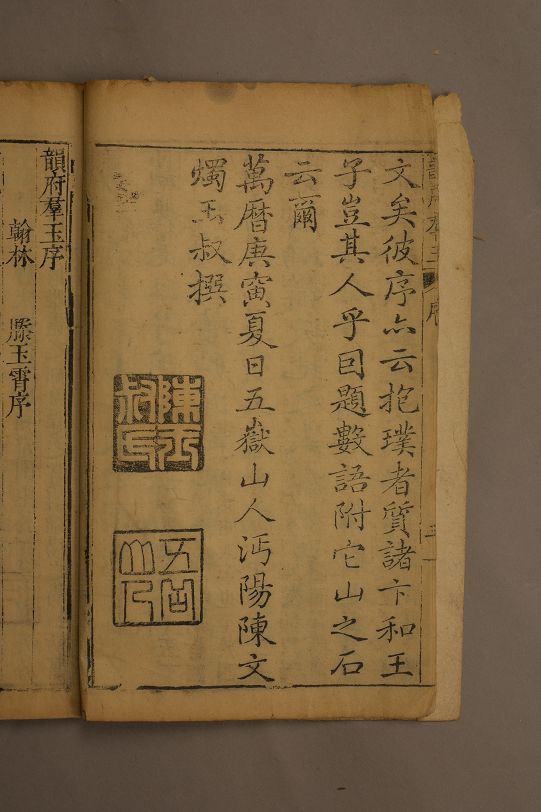 文矣彼序亦云抱璞者質諸卞和王
子豈其人乎因題數語附它山之石
云爾
萬曆庚寅夏日五嶽山人沔陽陳文
燭玉叔撰
陳玉叔氏
五岳山人
韻府羣玉序
翰林 滕玉霄序